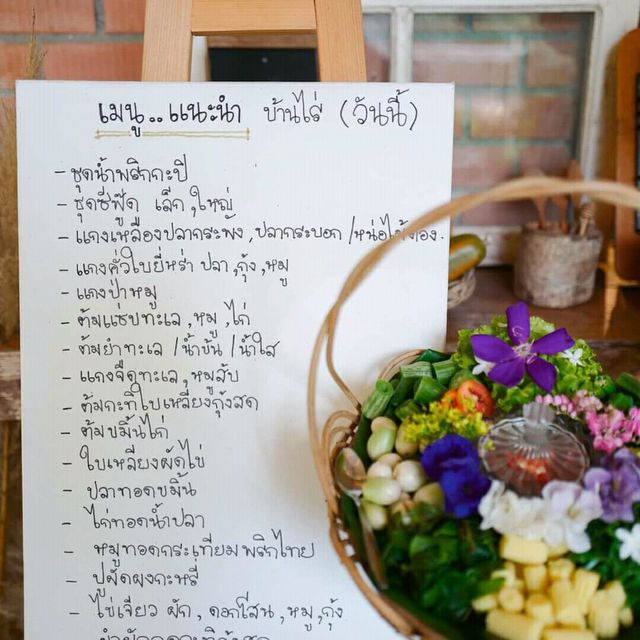 เมนู..แนะนำ บ้านไร่ (วันนี้)
- ชุดน้ำพริกกะปิ
- ชุดซีฟู๊ด เล็ก,ใหญ่
- แกงเหลืองปลากระพง,ปลากระบอก/หน่อไม้ดอง.
- แกงคั่วใบยี่หร่า ปลา,กุ้ง,หมู
- แกงป่าหมู
- ต้มแซ่บทะเล,หมู,ไก่
- ต้มยำทะเล/น้ำข้น/น้ำใส
- แกงจืดทะเล,หมูสับ
- ต้มกะทิใบเหลียงกุ้งสด
- ต้มขมิ้นไก่
- ใบเหลียงผัดไข่
- ปลาทอดขมิ้น
- ไก่ทอดน้ำปลา
- หมูทอดกระเทียมพริกไทย
- ปูผัดผงกะหรี่
- ไข่เจียว ผัก, ดอกโสน,หมู,กุ้ง